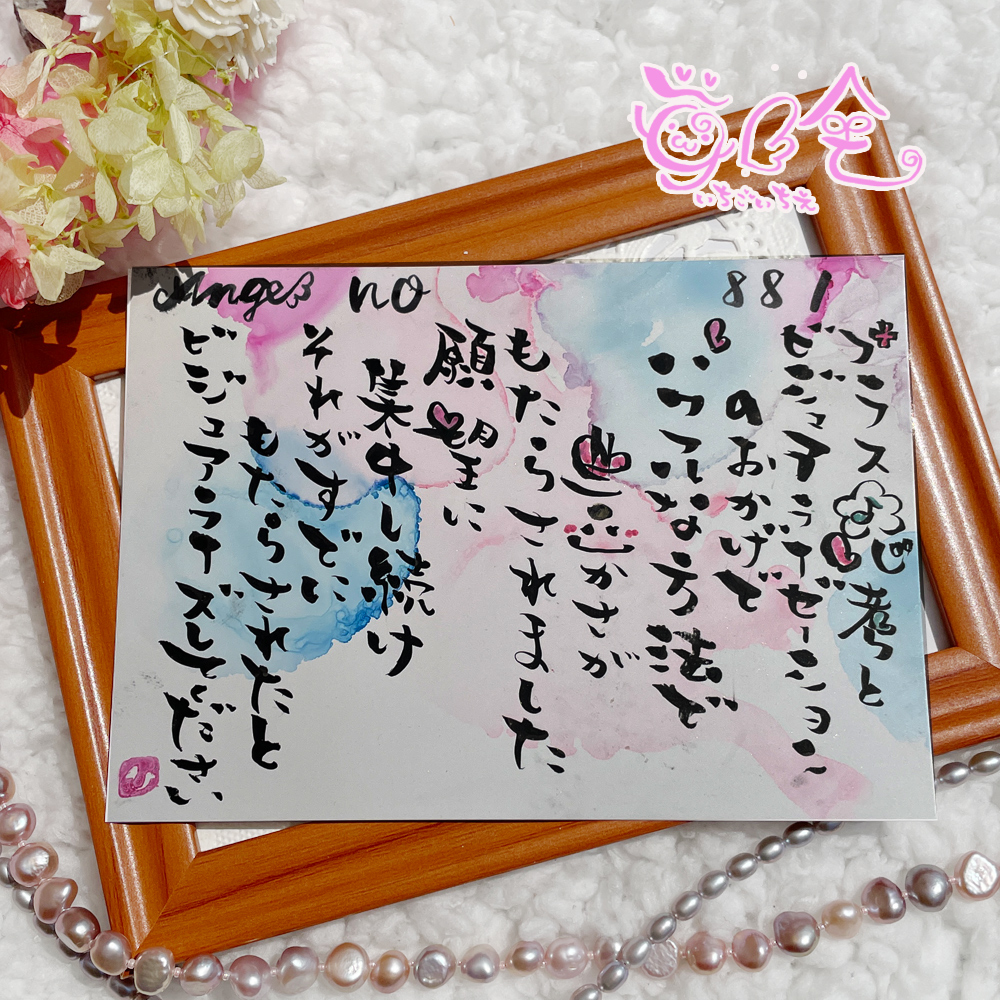 Angel no 881
プラス思考と
ビジュアライゼーション
のおかげで
パワフルな方法で
豊かさが
もたらされました
願望に
集中し続け
それがすでに
もたらされたと
ビジュアライズしてください
いちごいちえ